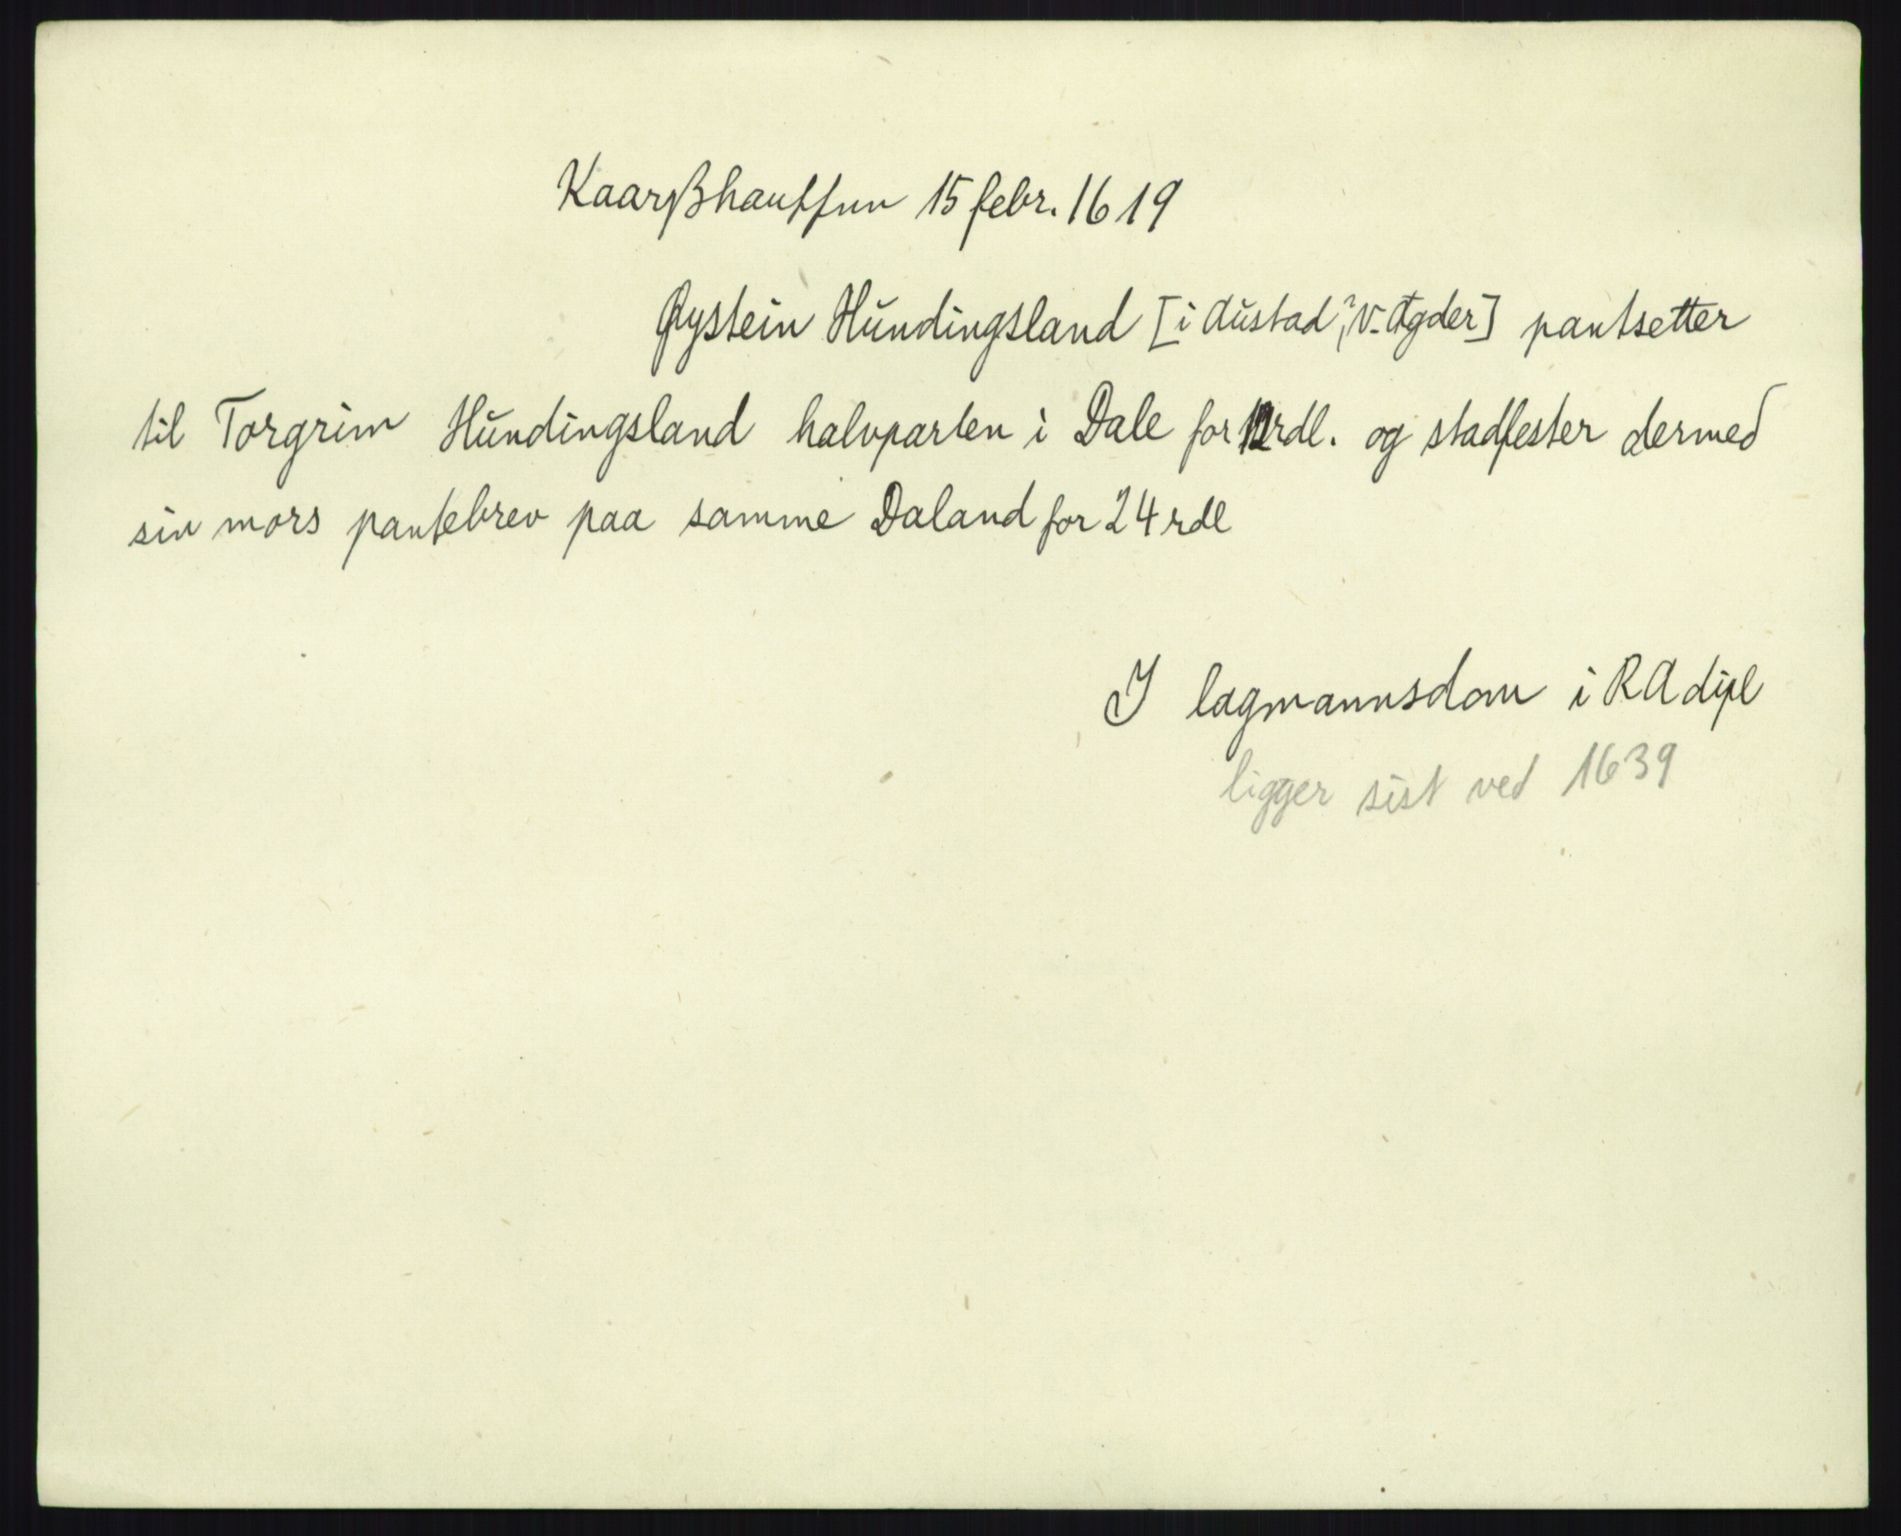 Kaarßhauffun 15 febr. 1619
Øystein Hundingsland [i Austad?, V-Agder] pantsetter
til Torgrim Hundingsland halvparten i Dale for 12 rdl. og stadfester dermed
sin mors pantebrev paa samme Daland for 24 rdl
I lagmannsdom i RA dipl
ligger sist ved 1639